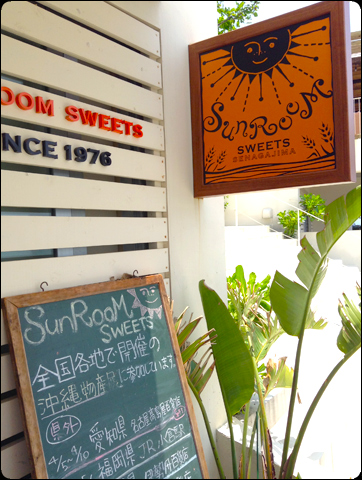 ROOM SWEETS
SINCE 1976
SUNROOM
SWEETS
SENAGAJIMA
SUNROOM
SWEETS
全国各地で開催の
沖縄物産展に参加しています。
県外
愛知県
4/5~4/10
福岡県 JR小倉